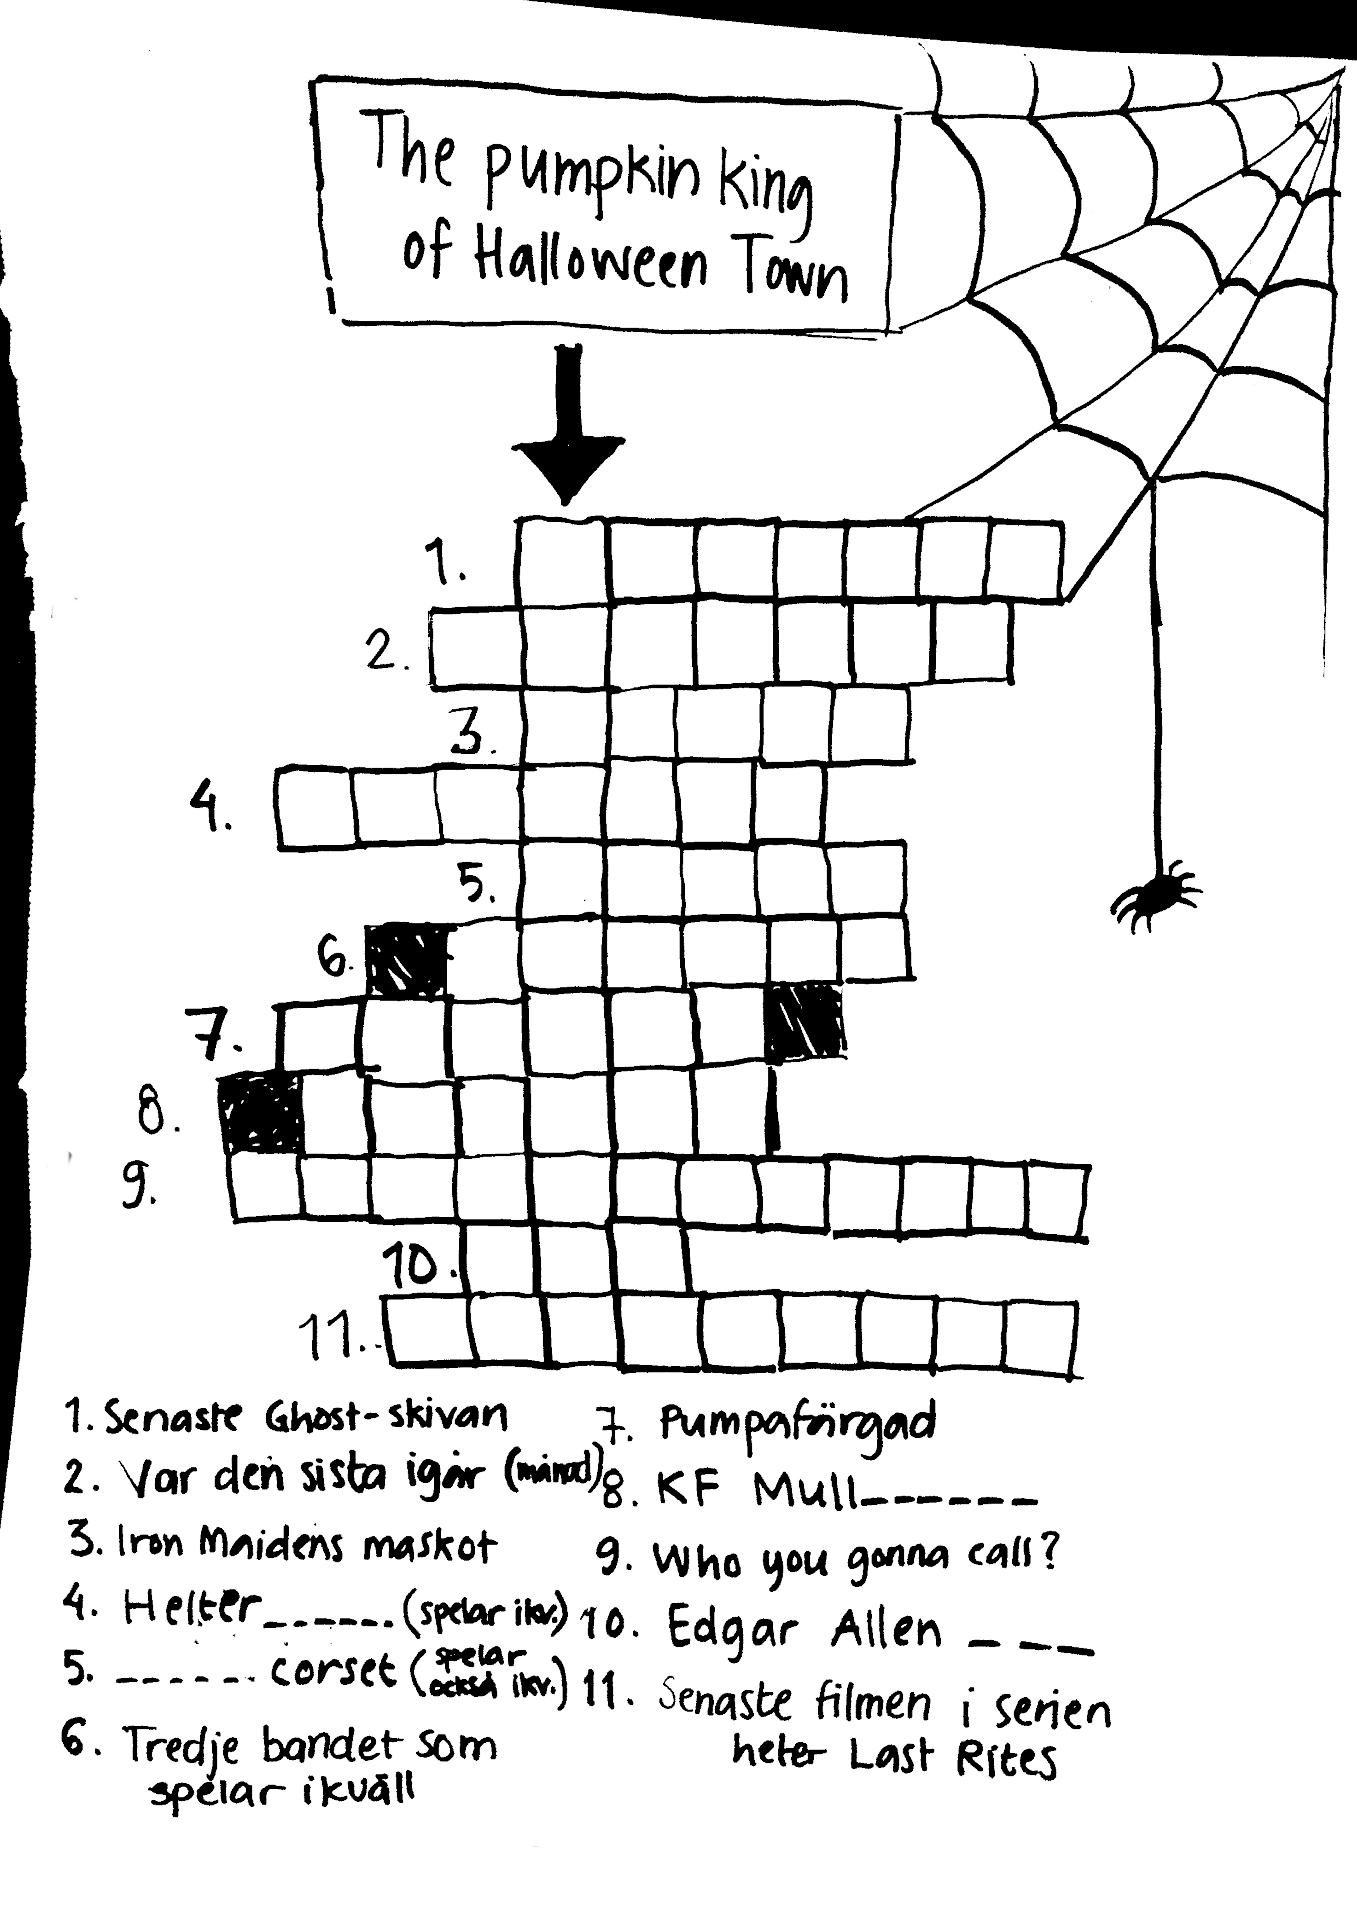 The pumpkin king
of Halloween Town
1.
2.
3.
4.
5.
6.
7.
8.
9.
10.
11.
1. Senaste Ghost-skivan
2. Var den sista igår (månad)
3. Iron Maidens maskot
4. Helter ------ (spelar ikv.)
5. ------ corset (spelar också ikv.)
6. Tredje bandet som
spelar ikväll
7. Pumpafärgad
8. KF Mull------
9. Who you gonna call?
10. Edgar Allen ---
11. Senaste filmen i serien
heter Last Rites